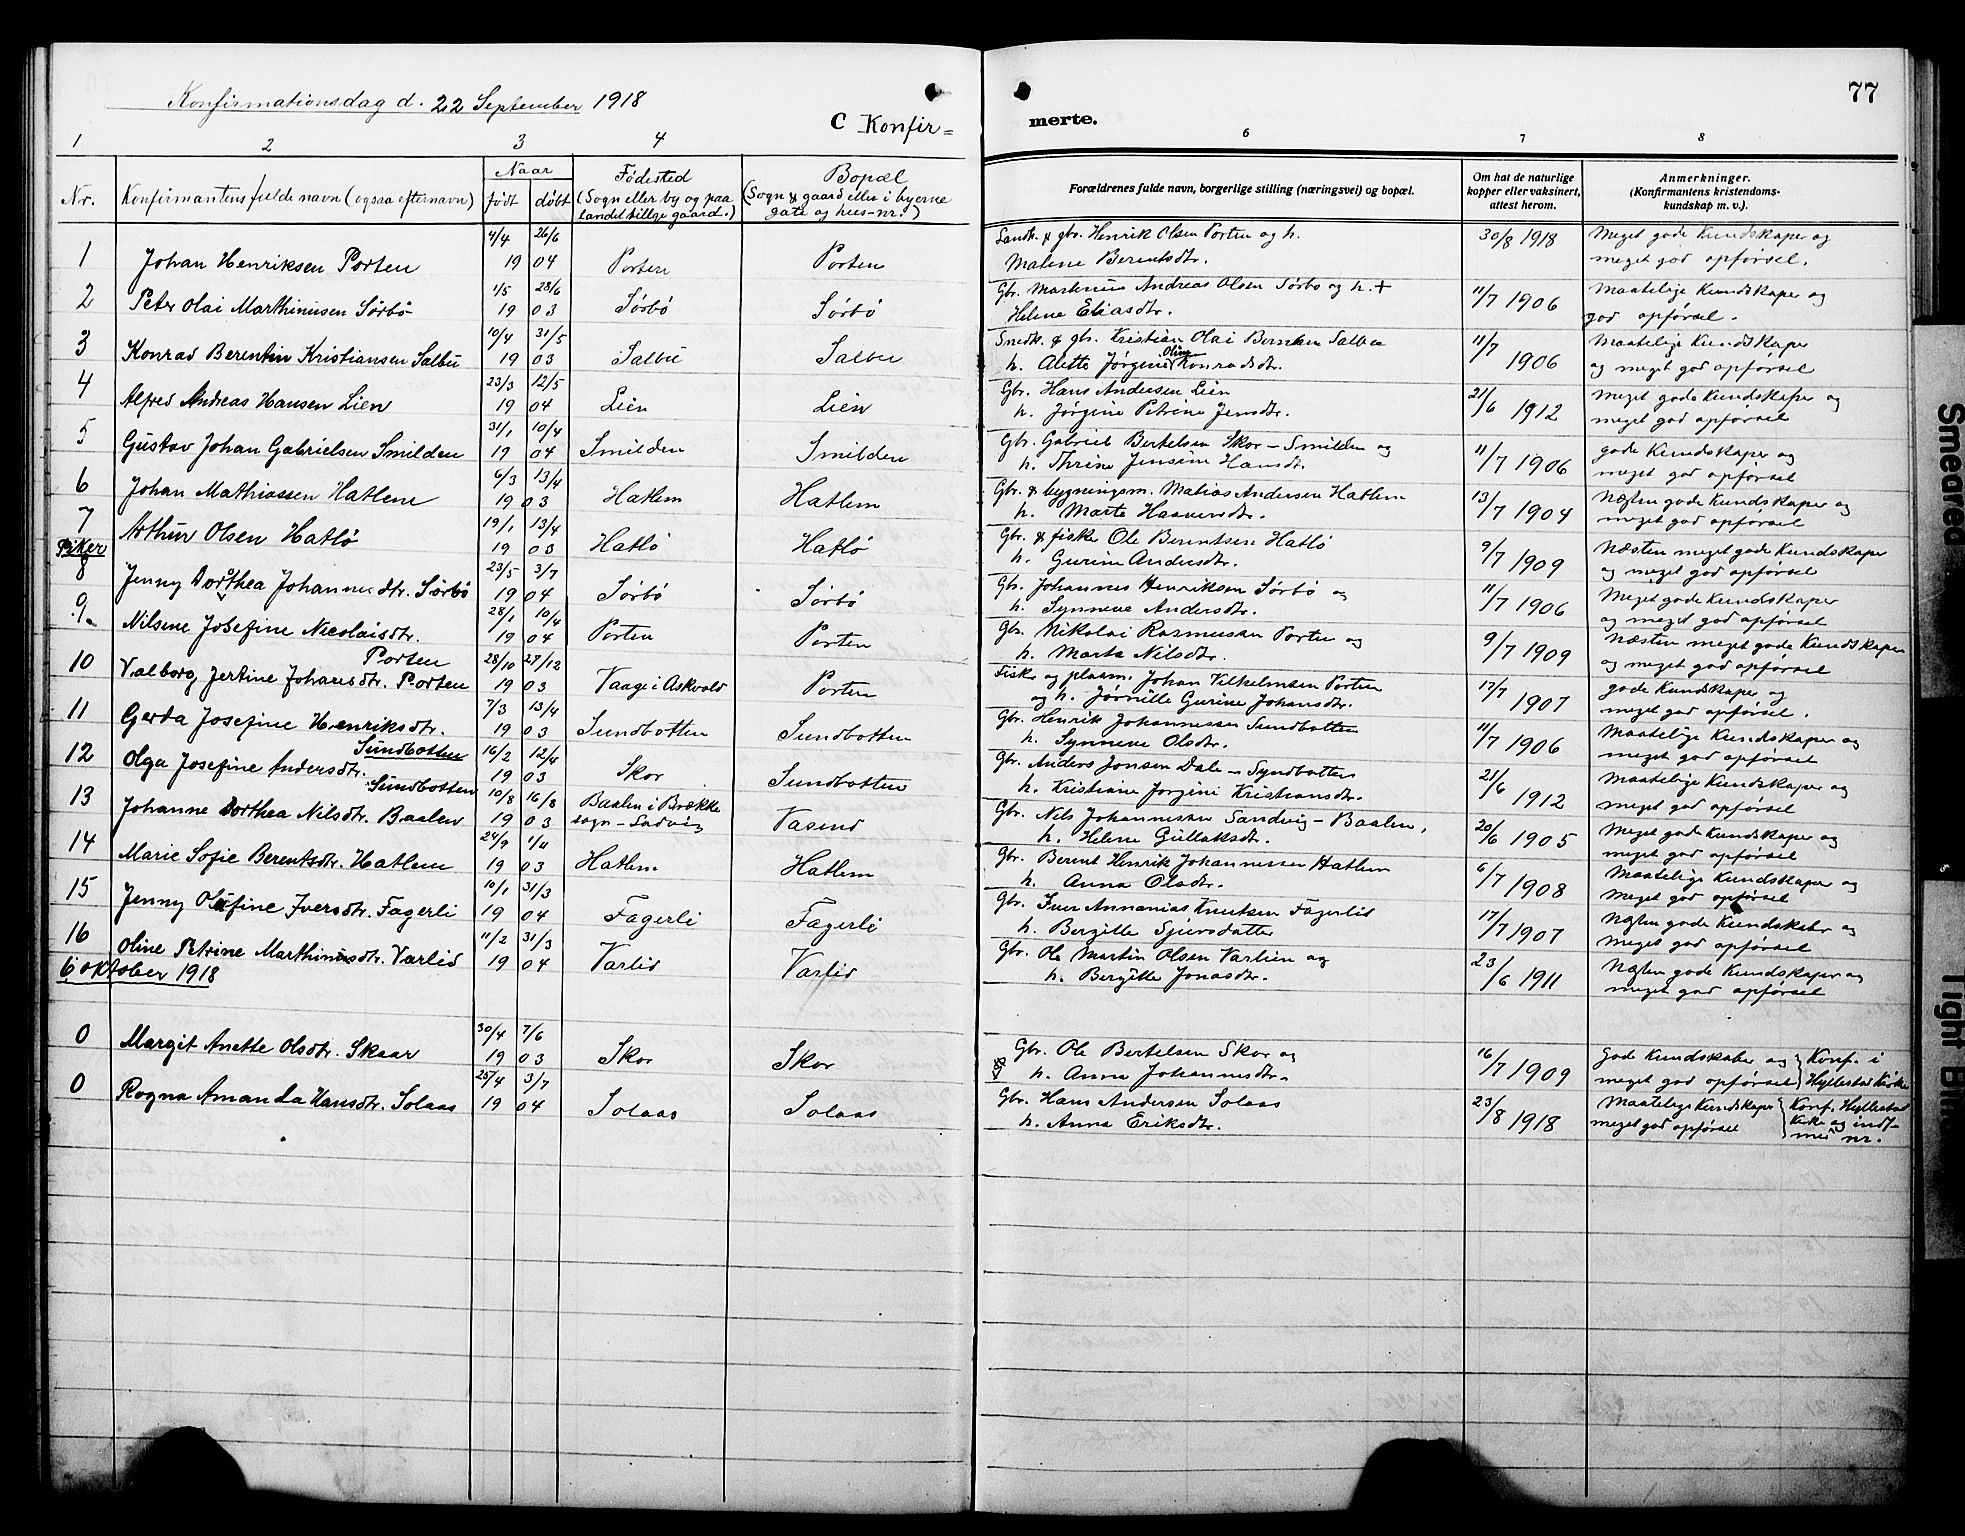 Konfirmationsdag d. 22 September 1918
C Konfir=
merte.
77
1 2 3 4
6 7 8
Nr.
Konfirmantens fulde navn (ogsaa efternavn)
Naar
født døbt
Fødested
(Sogn eller by og paa
landet tillige gaard.)
Bopæl
(Sogn & gaard eller i byerne
gate og hus-nr.)
Forældrenes fulde navn, borgerlige stilling (næringsvei) og bopæl.
Om hat de naturlige
kopper eller vaksinert,
attest herom.
Anmerkninger.
(Konfirmantens kristendoms-
kundskap m. v.).
1 Johan Henriksen Porten 4/4 1904 26/6 Porten Porten
Gbr. Henrik Olsen Porten og h.
Malene Berentsdtr.
30/8 1918 Meget gode Kundskaper og
meget god opførsel.
2 Peter Olai Marthinusen Sørbø 1/5 1903 28/6 Sørbø Sørbø
Gbr. Martinius Andreas Olsen Sørbø og h. +
Helene Eliasdtr.
11/7 1906 Maatelige Kundskaper og
god opførsel.
3 Konrad Berentin Kristiansen Salbu 10/4 1903 31/5 Salbu Salbu
Smedk. & gbr. Kristian Olai Berntsen Salbu
h. Alette Jørgine Oline Konradsdtr.
11/7 1906 Maatelige Kundskaper
og meget god opførsel
4 Alfred Andreas Hansen Lien 23/3 1904 12/5 Lien Lien
Gbr. Hans Andersen Lien
h. Jørgine Petrine Jensdtr.
21/6 1912 Meget gode Kundskaper og
meget god opførsel
5 Gustav Johan Gabrielsen Smilden 31/1 1904 10/4 Smilden Smilden
Gbr. Gabriel Bertelsen Skor - Smilden og
h. Thrine Jensine Hansdt.
11/7 1906 gode Kundskaper og
meget god opførsel
6 Johan Mathiassen Hatlem 6/3 1903 13/4 Hatlem Hatlem
Gbr. & bygningsm. Matias Andersen Hatlem
h. Marte Haaversdtr.
13/7 1904 Næsten gode Kundskaper og
meget god opførsel
7 Arthur Olsen Hatlø 19/1 1903 13/4 Hatlø Hatlø
Gbr. & fisker Ole Berentsen Hatlø
h. Gurine Andersdtr.
9/7 1909 Næsten meget gode Kundskaper
og meget god opførsel
Piker
8 Jenny Dorthea Johannesdtr. Sørbø 23/5 1904 3/7 Sørbø Sørbø
Gbr. Johannes Henriksen Sørbø og
h. Synneve Andersdtr.
11/7 1906 Meget gode Kundskaper
og meget god opførsel
9. Nilsine Josefine Nicolaisdtr.
Porten 28/1 1904 10/4 Porten Porten
Gbr. Nikolai Rasmussen Porten og
h. Marta Nilsdtr.
9/7 1909 Næsten meget gode Kundskaper
og meget god opførsel
10 Valborg Jertine Johansdtr. Porten 28/10 1903 27/12 Vaage i Askvold Porten
Fisk. og plasm. Johan Vilhelmsen Porten
og h. Jørnille Gurine Johansdtr.
17/7 1907 gode Kundskaper og
meget god opførsel.
11 Gerda Josefine Henriksdtr.
Sundbotten 7/3 1903 13/4 Sundbotten Sundbotten
Gbr. Henrik Johannessen Sundbotten
h. Synneve Olsdtr.
11/7 1906 Maatelige Kundskaper og
meget god opførsel
12 Olga Josefine Andersdtr.
Sundbotten 16/2 1903 12/4 Skor Sundbotten
Gbr. Anders Jonsen Dale - Syndbotten
h. Kristiane Jørgine Kristiansdtr.
21/6 1912 Maatelige Kundskaper og
meget god opførsel
13 Johanne Dorthea Nilsdtr. Baalen 10/8 1903 16/8 Baalen i Brække
sogn - Sadvig Vasend
Gbr. Nils Johannessen Sandvig - Baalen,
h. Helene Gullaksdtr.
20/6 1905 Meget gode Kundskaper og
meget god opførsel
14 Marie Sofie Berentsdtr. Hatlem 24/9 1903 1/11 Hatlem Hatlem
Gbr. Berent Henrik Johannessen Hatlem
h. Anna Olsdtr.
6/7 1908 Maatelige Kundskaper og
meget god opførsel
15 Jenny Olufine Iversdtr. Fagerli 10/1 1904 31/3 Fagerli Fagerli
Gbr. Iver Annanias Knutsen Fagerlid
h. Bergitte Sjursdatter
17/7 1907 Næsten gode Kundskaber og
meget god opførsel
16 Oline Petrine Marthinusdtr. Varlid 11/2 1904 31/3 Varlid Varlid
Gbr. Ole Martin Olsen Varlien og
h. Bergitte Jonasdtr.
23/6 1911 Næsten gode Kundskaper og
meget god opførsel
6 oktober 1918
0 Margit Anette Olsdtr. Skaar 30/4 1903 7/6 Skor Skor
Gbr. Ole Bertelsen Skor og
h. Anna Johannesdtr.
16/7 1909 Gode Kundskaber og
meget god opførsel
Konf. i
Hyllestad Kirke
0 Rogna Amanda Hansdtr. Solaas 25/4 1904 3/7 Solaas Solaas
Gbr. Hans Andersen Solaas
h. Anna Eriksdtr.
23/8 1918 Maatelige Kundskaper
meget god opførsel
Konf. Hyllestad
Kirke og indf.
med nr.
Smeared
Tight Bin